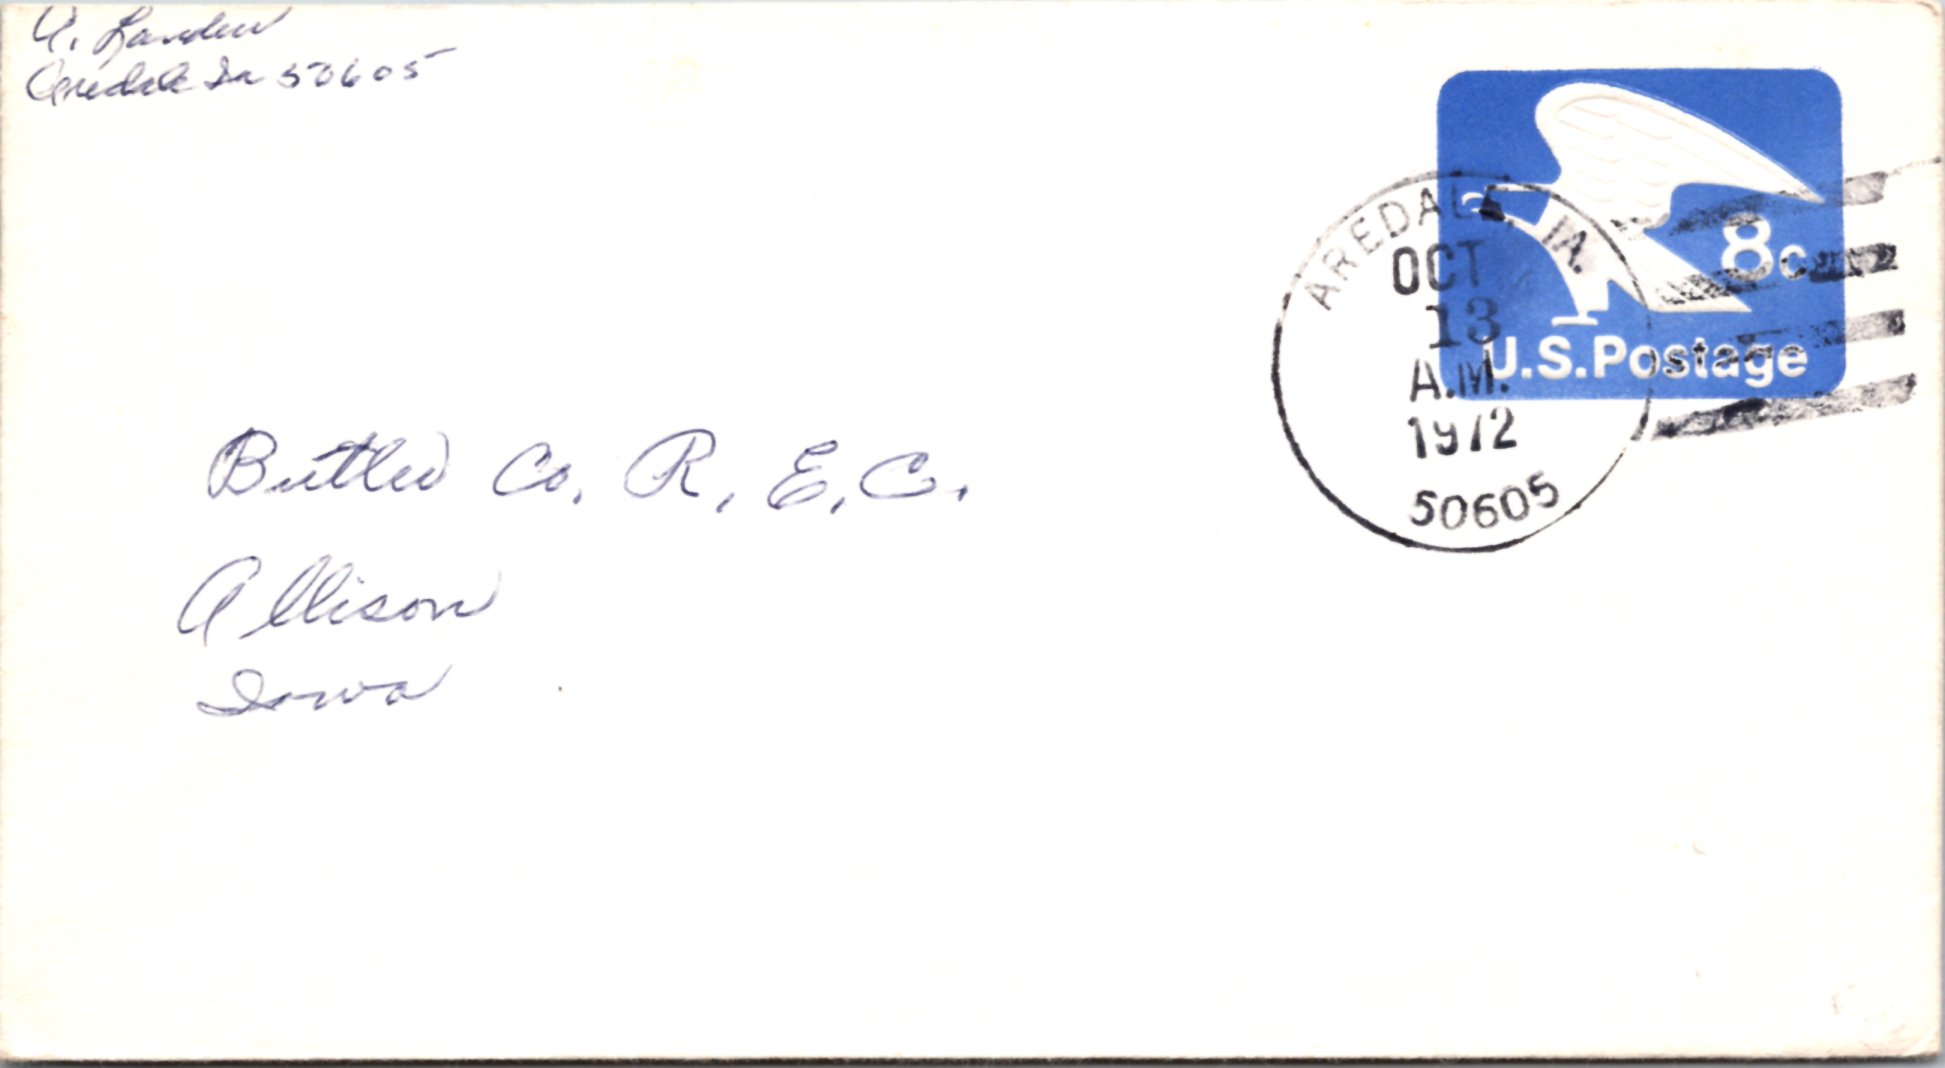 Aredale Ia 50605
8c
U.S. Postage
AREDALE, IA.
OCT
13
A.M.
1972
50605
Butler Co. R. E. C.
Allison
Iowa